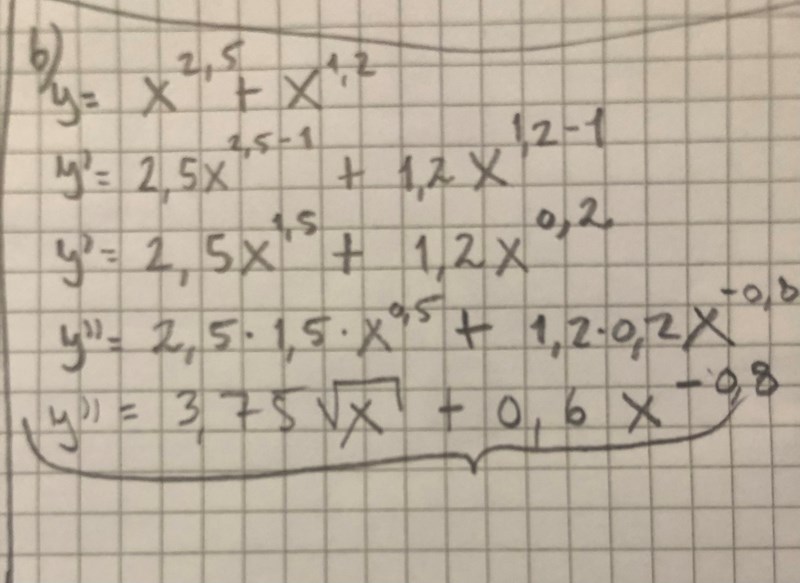 b)
y= x^2,5 + x^1,2
y'= 2,5x^2,5-1 + 1,2x^1,2-1
y'= 2,5x^1,5 + 1,2x^0,2
y''= 2,5·1,5·x^0,5 + 1,2·0,2x^-0,8
y''= 3,75√x + 0,6 x^-0,8